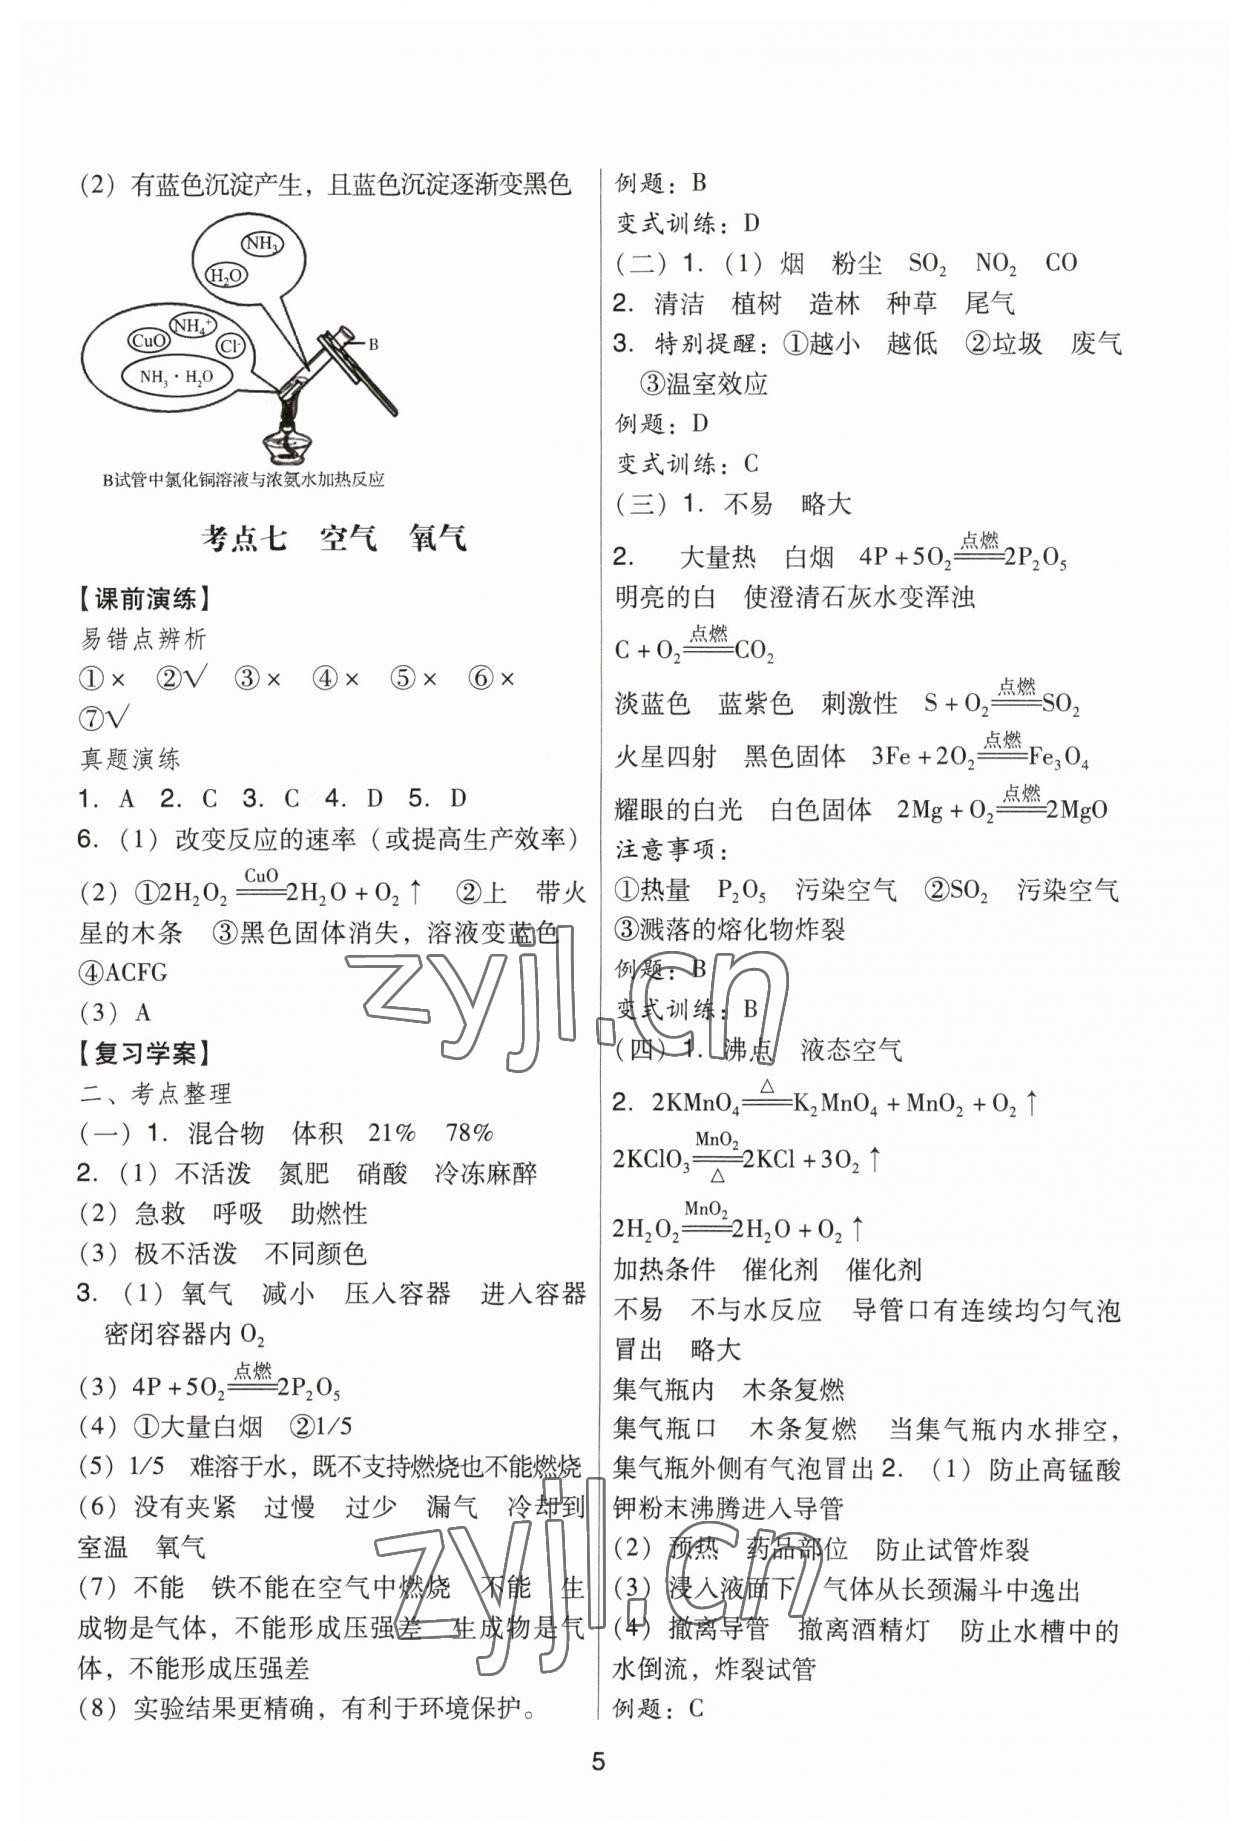 (2) 有蓝色沉淀产生，且蓝色沉淀逐渐变黑色
NH₃
H₂O
NH₄⁺
CuO
Cl⁻
NH₃·H₂O
B
B试管中氯化铜溶液与浓氨水加热反应
考点七 空气 氧气
【课前演练】
易错点辨析
①× ②√ ③× ④× ⑤× ⑥×
⑦√
真题演练
1. A 2. C 3. C 4. D 5. D
6. (1) 改变反应的速率（或提高生产效率）
(2) ①2H₂O₂ ═CuO═ 2H₂O + O₂↑ ②上 带火
星的木条 ③黑色固体消失，溶液变蓝色
④ACFG
(3) A
【复习学案】
二、考点整理
(一) 1. 混合物 体积 21% 78%
2. (1) 不活泼 氮肥 硝酸 冷冻麻醉
(2) 急救 呼吸 助燃性
(3) 极不活泼 不同颜色
3. (1) 氧气 减小 压入容器 进入容器
密闭容器内 O₂
(3) 4P + 5O₂ ═点燃═ 2P₂O₅
(4) ①大量白烟 ②1/5
(5) 1/5 难溶于水，既不支持燃烧也不能燃烧
(6) 没有夹紧 过慢 过少 漏气 冷却到
室温 氧气
(7) 不能 铁不能在空气中燃烧 不能 生
成物是气体，不能形成压强差 生成物是气
体，不能形成压强差
(8) 实验结果更精确，有利于环境保护。
例题：B
变式训练：D
(二) 1. (1) 烟 粉尘 SO₂ NO₂ CO
2. 清洁 植树 造林 种草 尾气
3. 特别提醒：①越小 越低 ②垃圾 废气
③温室效应
例题：D
变式训练：C
(三) 1. 不易 略大
2. 大量热 白烟 4P + 5O₂ ═点燃═ 2P₂O₅
明亮的白 使澄清石灰水变浑浊
C + O₂ ═点燃═ CO₂
淡蓝色 蓝紫色 刺激性 S + O₂ ═点燃═ SO₂
火星四射 黑色固体 3Fe + 2O₂ ═点燃═ Fe₃O₄
耀眼的白光 白色固体 2Mg + O₂ ═点燃═ 2MgO
注意事项：
①热量 P₂O₅ 污染空气 ②SO₂ 污染空气
③溅落的熔化物炸裂
例题：B
变式训练：B
(四) 1. 沸点 液态空气
2. 2KMnO₄ ═△═ K₂MnO₄ + MnO₂ + O₂↑
2KClO₃ ═MnO₂/△═ 2KCl + 3O₂↑
2H₂O₂ ═MnO₂═ 2H₂O + O₂↑
加热条件 催化剂 催化剂
不易 不与水反应 导管口有连续均匀气泡
冒出 略大
集气瓶内 木条复燃
集气瓶口 木条复燃 当集气瓶内水排空，
集气瓶外侧有气泡冒出 2. (1) 防止高锰酸
钾粉末沸腾进入导管
(2) 预热 药品部位 防止试管炸裂
(3) 浸入液面下 气体从长颈漏斗中逸出
(4) 撤离导管 撤离酒精灯 防止水槽中的
水倒流，炸裂试管
例题：C
5
zyjl.cn
zyjl.cn